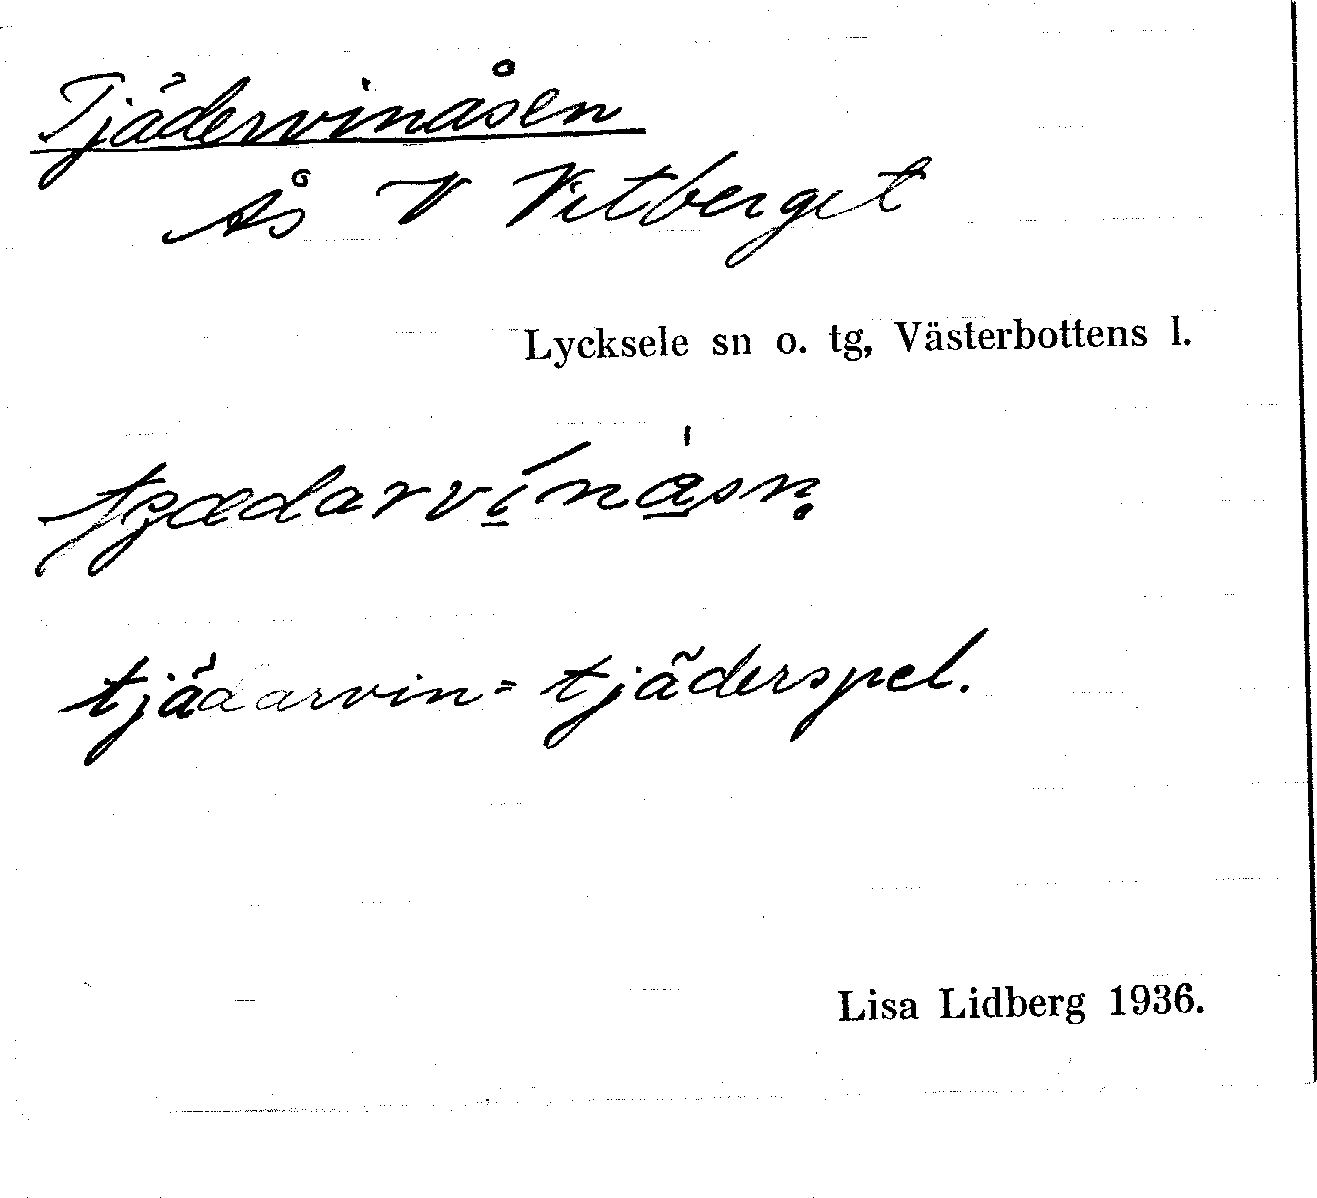 Tjädervinåsen
Ås V Vitberget
Lycksele sn o. tg, Västerbottens l.
tjädarvin = tjäderspel.
Lisa Lidberg 1936.